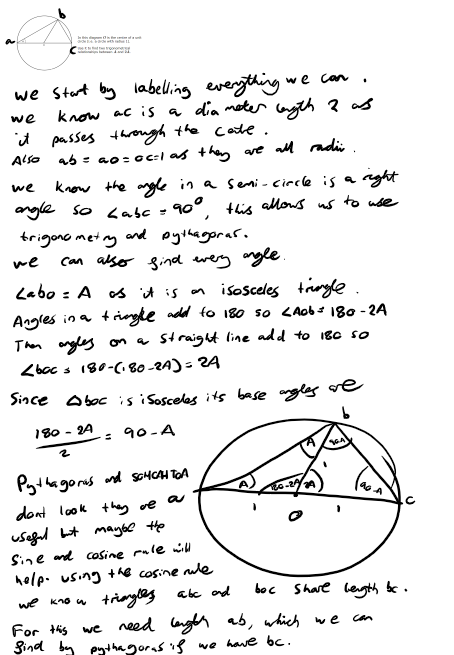 b
a
c
In this diagram O is the centre of a unit
circle (i.e. a circle with radius 1).
Use it to find two trigonometrical
relationships between A and 2A.
we start by labelling everything we can.
we know ac is a diameter length 2 as
it passes through the
Also ab = ao = oc = 1 as they are all radii.
we know the angle in a semi-circle is a right
angle so ∠abc = 90°, this allows us to use
trigonometry and pythagoras.
we can also find every angle.
∠abo = A as it is an isosceles triangle.
Angles in a triangle add to 180 so ∠Aob = 180 - 2A
Then angles on a straight line add to 180 so
∠boc = 180 - (180 - 2A) = 2A
Since △boc is isosceles its base angles are
180 - 2A
2
= 90 - A
b
A
90-A
Pythagoras and SOHCAHTOA
dont look they are
useful but maybe the
sine and cosine rule will
help. using the cosine rule
a
A
180-2A
2A
90-A
c
1
1
1
O
we know triangles abc and boc share length bc.
For this we need length ab, which we can
find by pythagoras if we have bc.